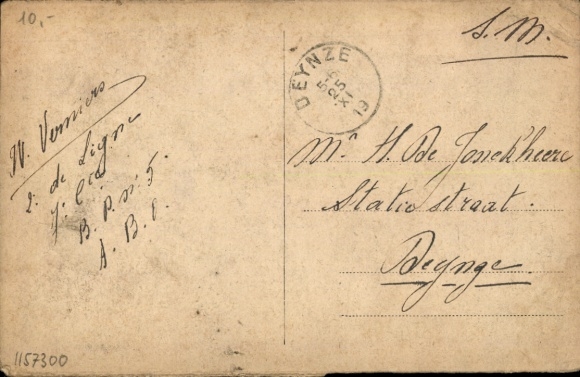 10,-
S. M.
DEYNZE
W. Verniers
2. de Ligne
7. Cie
B. P. n. 5.
A. B. O.
Mr H. De Jonckheere
Statiestraat.
Deynze.
1157300